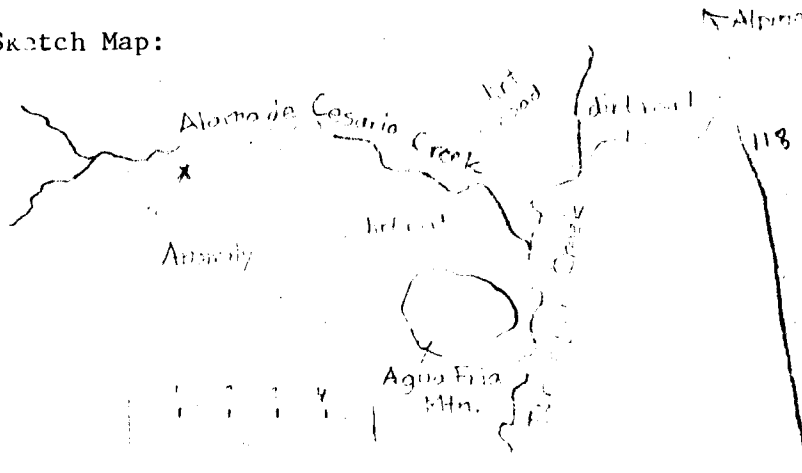 Sketch Map:
Alpine
Alamo de Cesario Creek
dirt road
dirt road
118
dirt road
Creek
Agua Fria
Mtn.